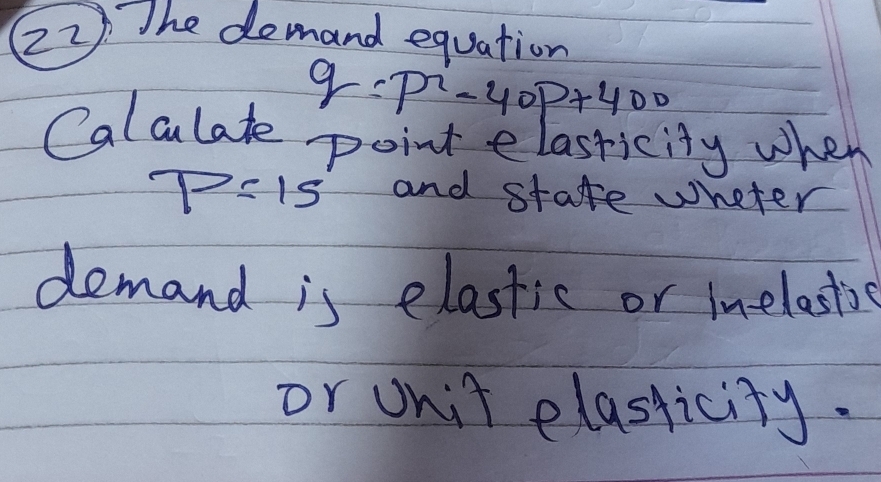 (22). The demand equation
q = p² - 40p + 400
Calculate point elasticity when
P = 15 and state wheter
demand is elastic or Inelastic
or unit elasticity.